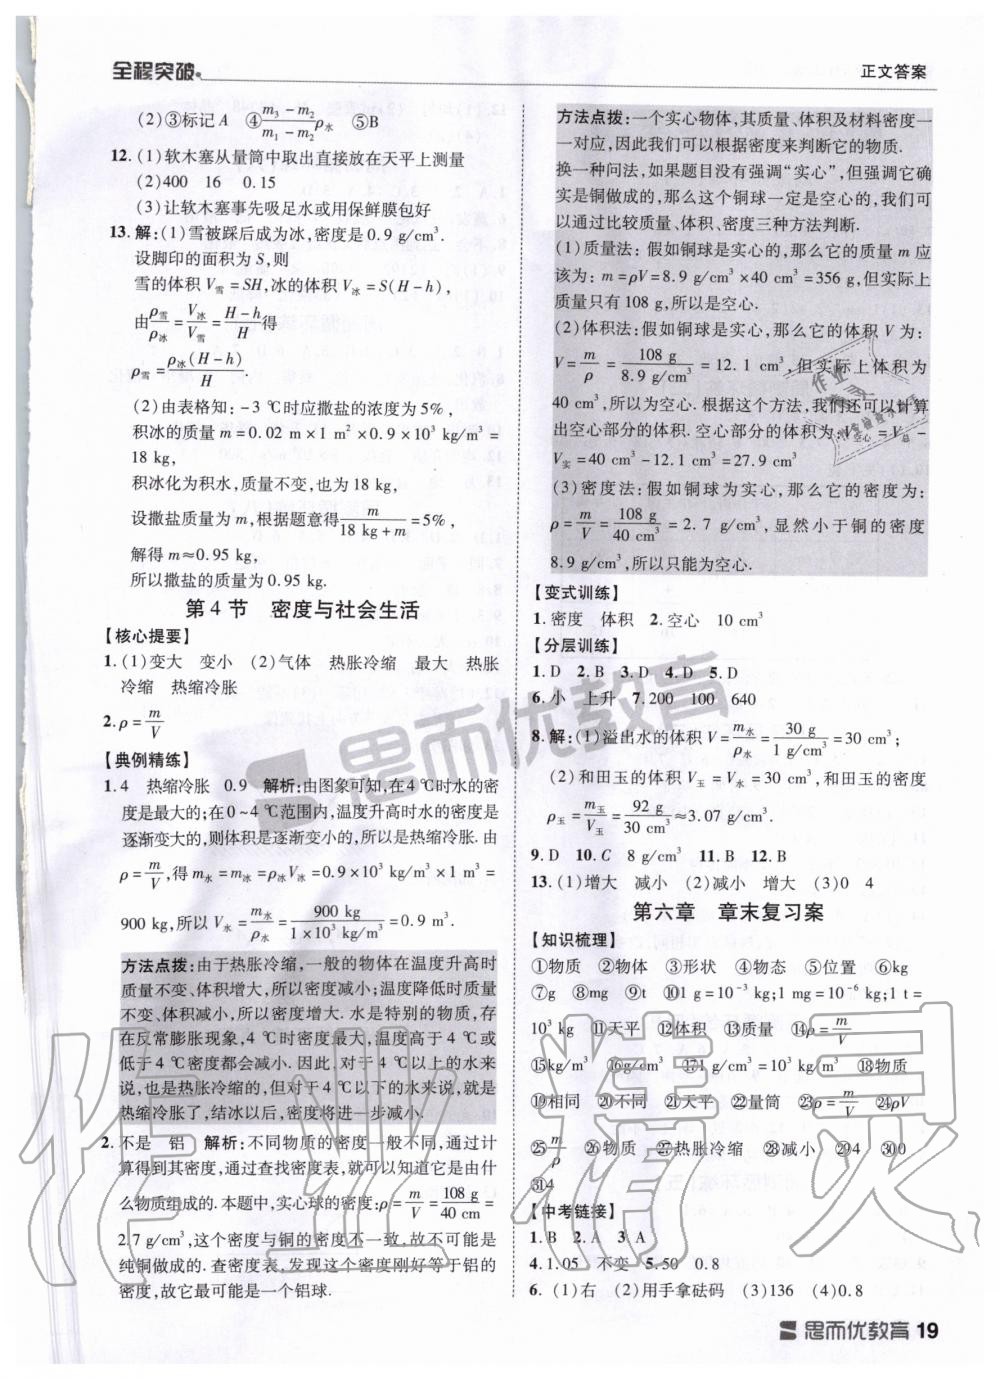 全程突破
正文答案
(2)③标记A ④(m₃－m₂)/(m₁－m₂)ρ水 ⑤B
12.(1)软木塞从量筒中取出直接放在天平上测量
(2)400 16 0.15
(3)让软木塞事先吸足水或用保鲜膜包好
13.解:(1)雪被踩后成为冰,密度是0.9 g/cm³.
设脚印的面积为S,则
雪的体积V雪=SH,冰的体积V冰=S(H－h),
由ρ雪/ρ冰=V冰/V雪=(H－h)/H得
ρ雪=ρ冰(H－h)/H.
(2)由表格知:－3 ℃时应撒盐的浓度为5%,
积冰的质量m=0.02 m×1 m²×0.9×10³ kg/m³=
18 kg,
积冰化为积水,质量不变,也为18 kg,
设撒盐质量为m,根据题意得m/(18 kg+m)=5%,
解得m≈0.95 kg.
所以撒盐的质量为0.95 kg.
第4节 密度与社会生活
【核心提要】
1.(1)变大 变小 (2)气体 热胀冷缩 最大 热胀
冷缩 热缩冷胀
2.ρ=m/V
【典例精练】
1.4 热缩冷胀 0.9 解析:由图象可知,在4 ℃时水的密
度是最大的;在0~4 ℃范围内,温度升高时水的密度是
逐渐变大的,则体积是逐渐变小的,所以是热缩冷胀.由
ρ=m/V,得m水=m冰=ρ冰V冰=0.9×10³ kg/m³×1 m³=
900 kg,所以V水=m水/ρ水=900 kg/(1×10³ kg/m³)=0.9 m³.
方法点拨:由于热胀冷缩,一般的物体在温度升高时
质量不变、体积增大,所以密度减小;温度降低时质量
不变、体积减小,所以密度增大.水是特别的物质,存
在反常膨胀现象,4 ℃时密度最大,温度高于4 ℃或
低于4 ℃密度都会减小.因此,对于4 ℃以上的水来
说,也是热胀冷缩的,但对于4 ℃以下的水来说,就是
热缩冷胀了,结冰以后,密度将进一步减小.
2.不是 铝 解析:不同物质的密度一般不同,通过计
算得到其密度,通过查找密度表,就可以知道它是由什
么物质组成的.本题中,实心球的密度:ρ=m/V=108 g/40 cm=
2.7 g/cm³,这个密度与铜的密度不一致,故不可能是
纯铜做成的.查密度表,发现这个密度刚好等于铝的
密度,故它最可能是一个铝球.
方法点拨:一个实心物体,其质量、体积及材料密度一
一对应,因此我们可以根据密度来判断它的物质.
换一种问法,如果题目没有强调“实心”,但强调它确
实是铜做成的,那么这个铜球一定是空心的,我们可
以通过比较质量、体积、密度三种方法判断.
(1)质量法:假如铜球是实心的,那么它的质量m应
该为:m=ρV=8.9 g/cm³×40 cm³=356 g,但实际上
质量只有108 g,所以是空心.
(2)体积法:假如铜球是实心,那么它的体积V为:
V=m/ρ=108 g/(8.9 g/cm³)=12.1 cm³,但实际上体积为
40 cm³,所以为空心.根据这个方法,我们还可以计算
出空心部分的体积.空心部分的体积为:V空心=V总－
V实=40 cm³－12.1 cm³=27.9 cm³
(3)密度法:假如铜球为实心,那么它的密度为:
ρ=m/V=108 g/40 cm³=2.7 g/cm³,显然小于铜的密度
8.9 g/cm³,所以只能为空心.
【变式训练】
1.密度 体积 2.空心 10 cm³
【分层训练】
1.D 2.B 3.D 4.D 5.D
6.小 上升 7.200 100 640
8.解:(1)溢出水的体积V=m水/ρ水=30 g/(1 g/cm³)=30 cm³;
(2)和田玉的体积V玉=V水=30 cm³,和田玉的密度
ρ玉=m玉/V玉=92 g/30 cm³≈3.07 g/cm³.
9.D 10.C 8 g/cm³ 11.B 12.B
13.(1)增大 减小 (2)减小 增大 (3)0 4
第六章 章末复习案
【知识梳理】
①物质 ②物体 ③形状 ④物态 ⑤位置 ⑥kg
⑦g ⑧mg ⑨t ⑩1 g=10⁻³ kg;1 mg=10⁻⁶ kg;1 t=
10³ kg ⑪天平 ⑫体积 ⑬质量 ⑭ρ=m/V
⑮kg/m³ ⑯g/cm³ ⑰1 g/cm³=10³ kg/m³ ⑱物质
⑲相同 ⑳不同 ㉑天平 ㉒量筒 ㉓ρ=m/V ㉔ρV
㉕m/ρ ㉖物质 ㉗热胀冷缩 ㉘减小 ㉙4 ㉚0
㉛4
【中考链接】
1.B 2.A 3.A
4.1.05 不变 5.50 0.8
6.(1)右 (2)用手拿砝码 (3)136 (4)0.8
思而优教育
作业精灵
思而优教育 19